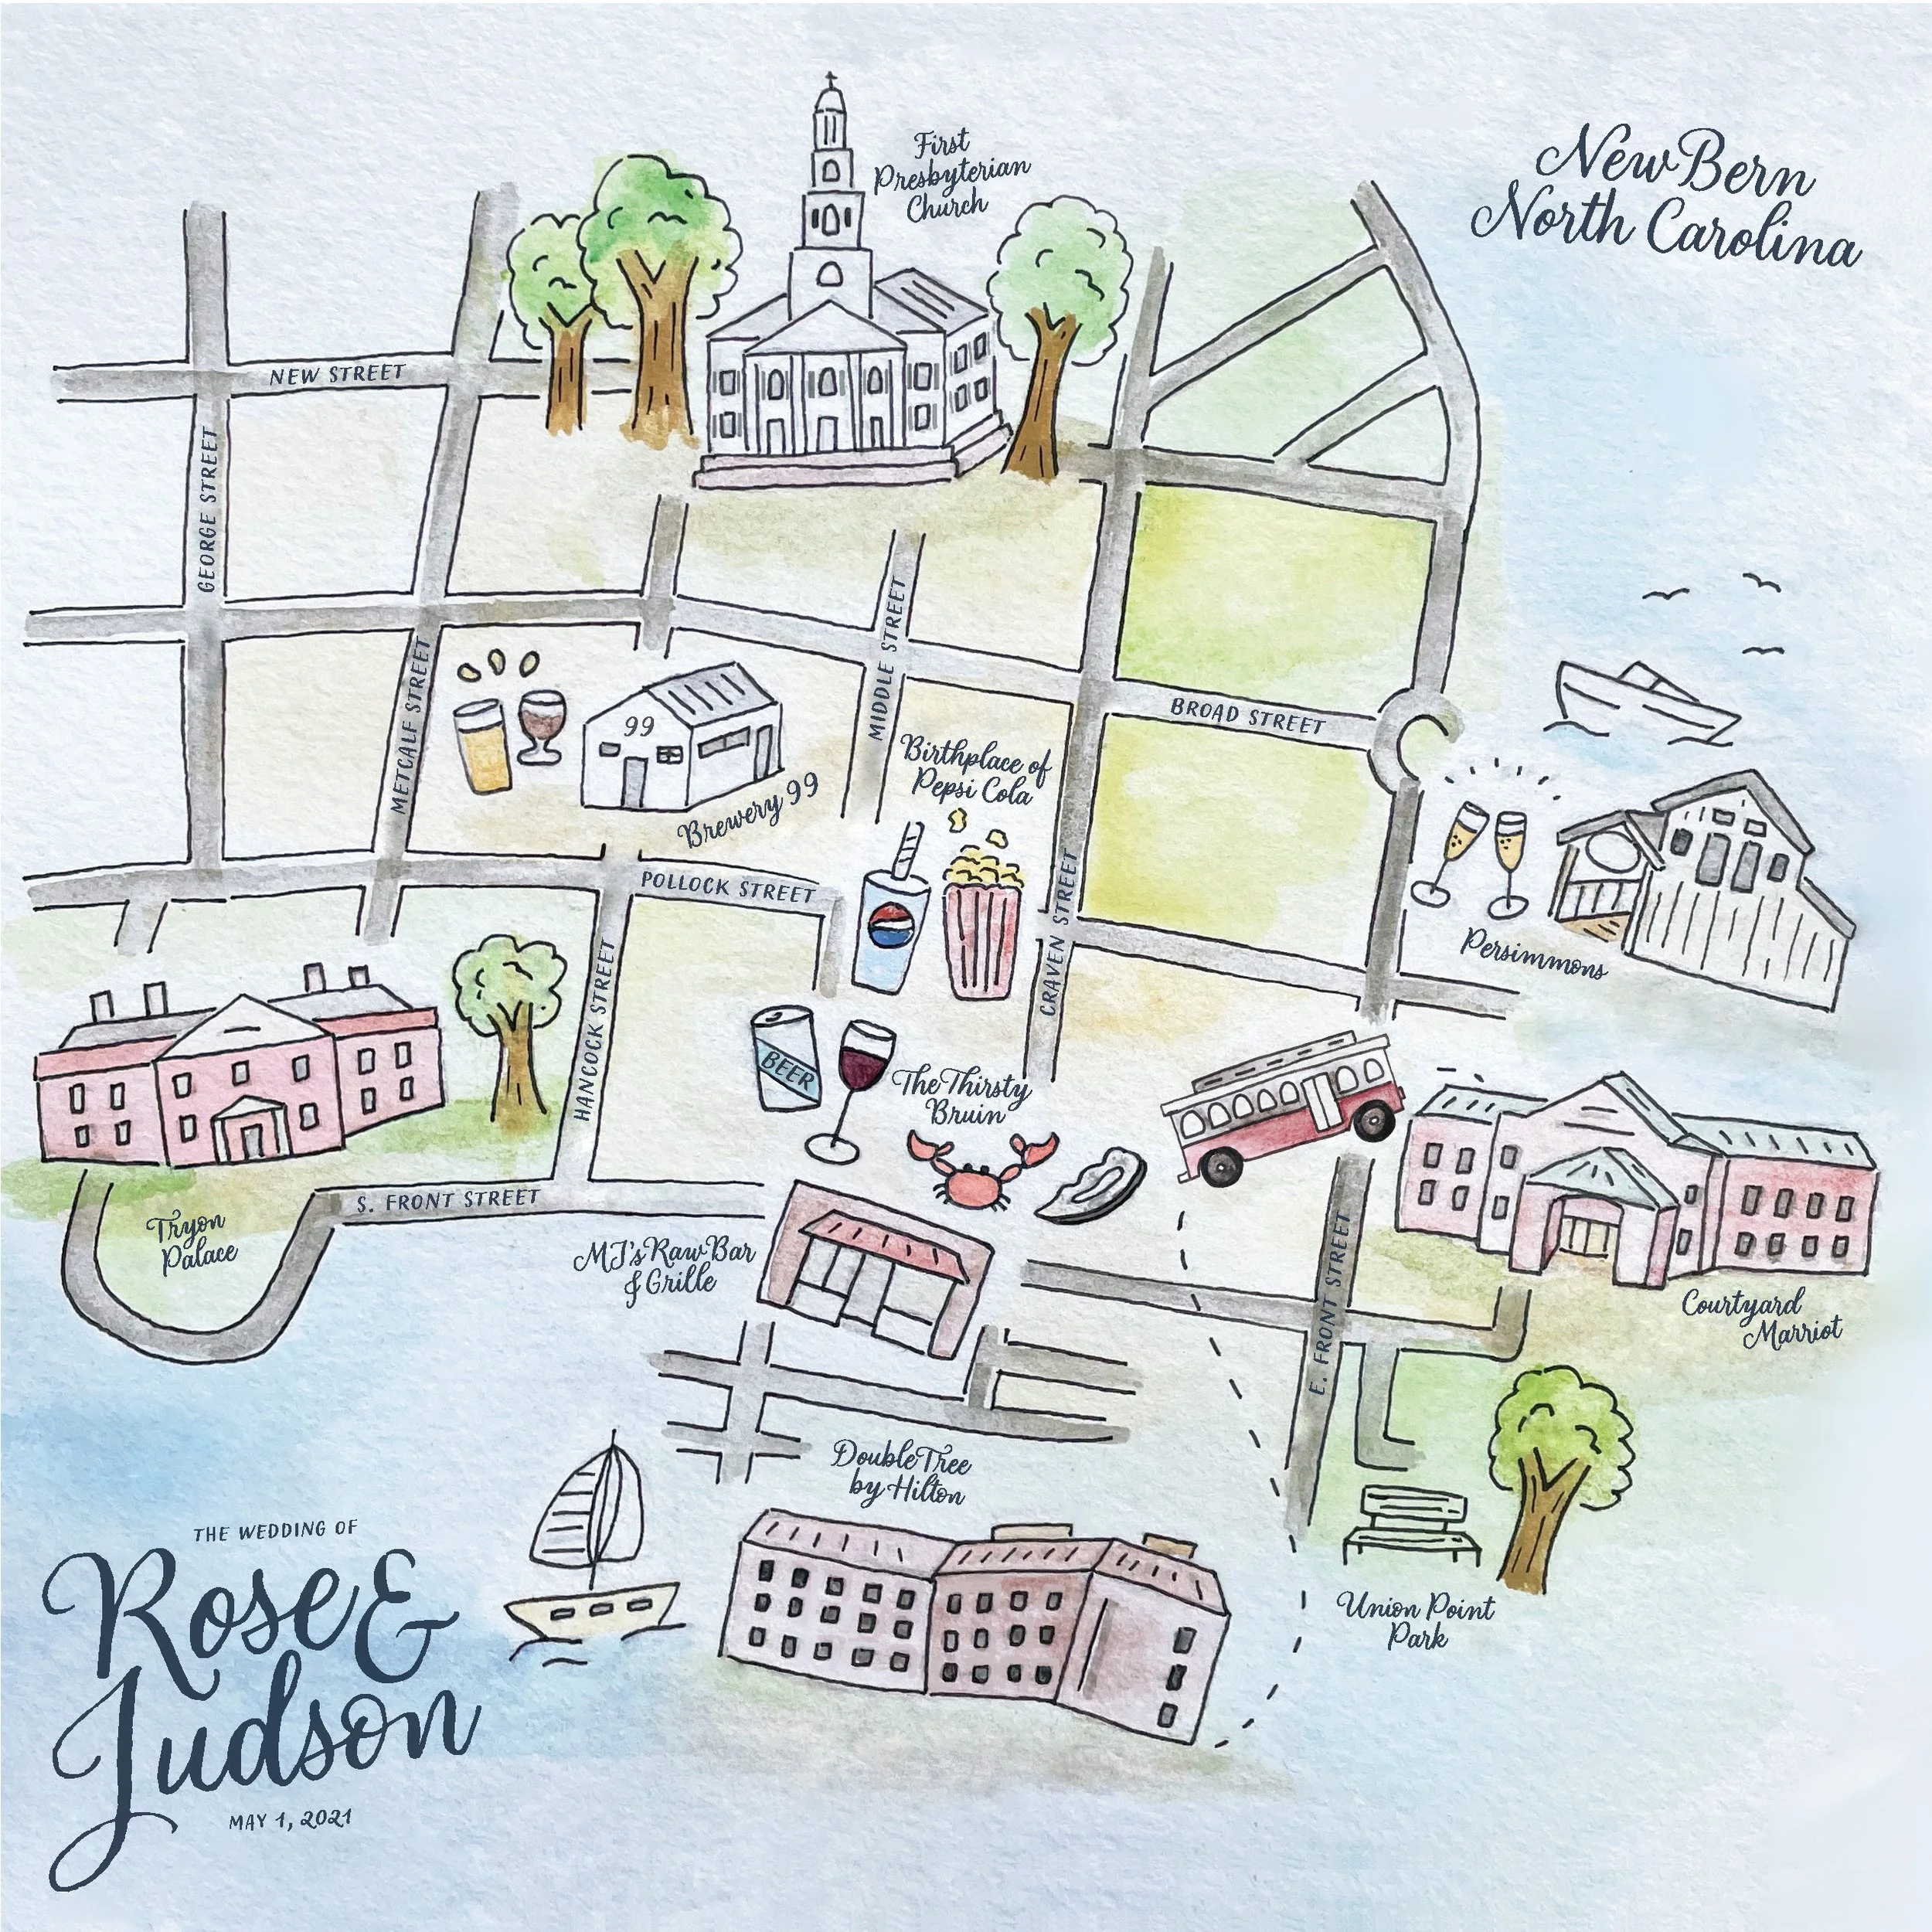 First
Presbyterian
Church
New Bern
North Carolina
NEW STREET
GEORGE STREET
METCALF STREET
MIDDLE STREET
BROAD STREET
99
Brewery 99
Birthplace of
Pepsi Cola
POLLOCK STREET
CRAVEN STREET
HANCOCK STREET
Persimmons
BEER
The Thirsty
Bruin
S. FRONT STREET
Tryon
Palace
MJ's Raw Bar
& Grille
E. FRONT STREET
Courtyard
Marriot
DoubleTree
by Hilton
Union Point
Park
THE WEDDING OF
Rose &
Judson
MAY 1, 2021